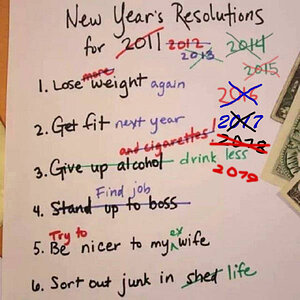 New Year's Resolutions
for 2011 2012 2013 2014
2015
2016
more
1. Lose weight again
2017
2. Get fit next year
2018
and cigarettes!
3. Give up alcohol drink less
2079
Find job
4. Stand up to boss
Try to ex
5. Be nicer to my wife
6. Sort out junk in shed life